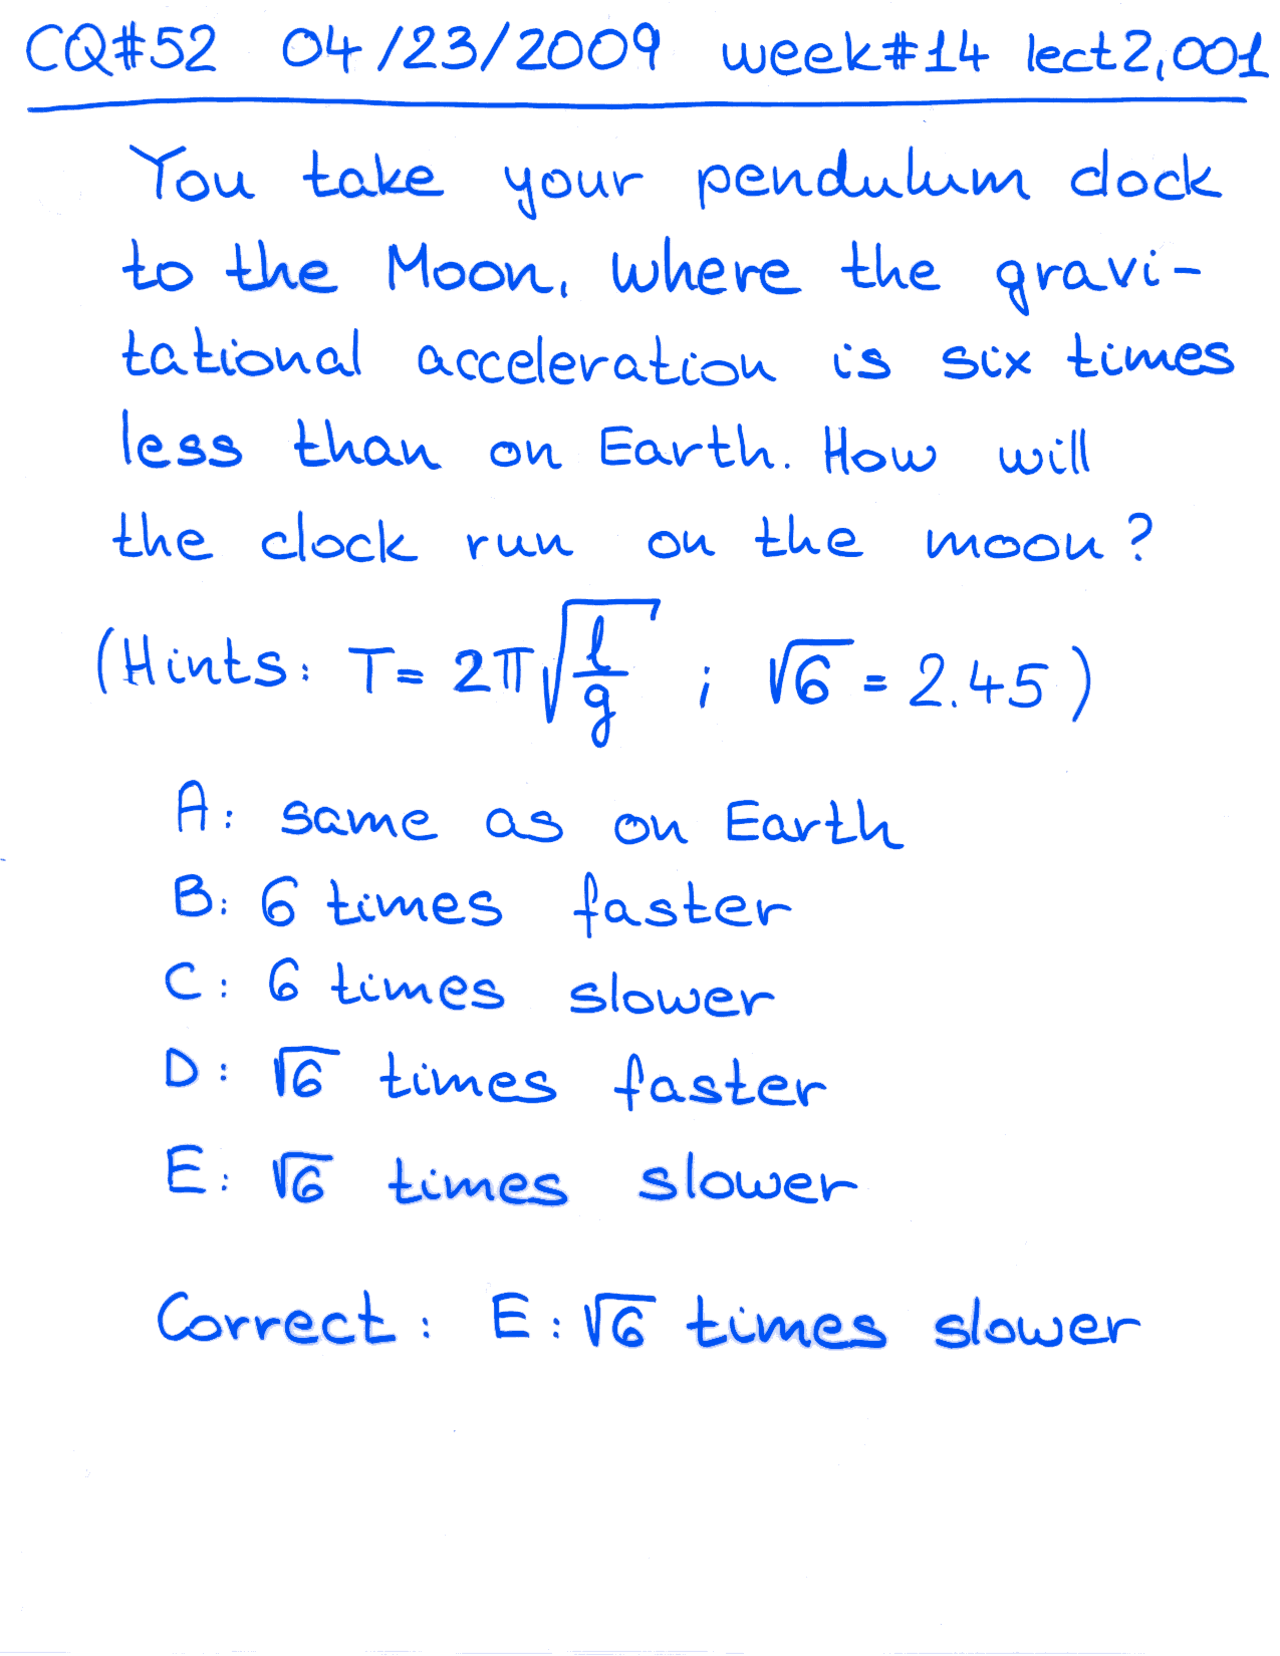 CQ#52 04/23/2009 week#14 lect2,001
You take your pendulum clock
to the Moon, where the gravi-
tational acceleration is six times
less than on Earth. How will
the clock run on the moon?
(Hints: T= 2π√(l/g) ; √6 = 2.45)
A: same as on Earth
B: 6 times faster
C: 6 times slower
D: √6 times faster
E: √6 times slower
Correct: E: √6 times slower